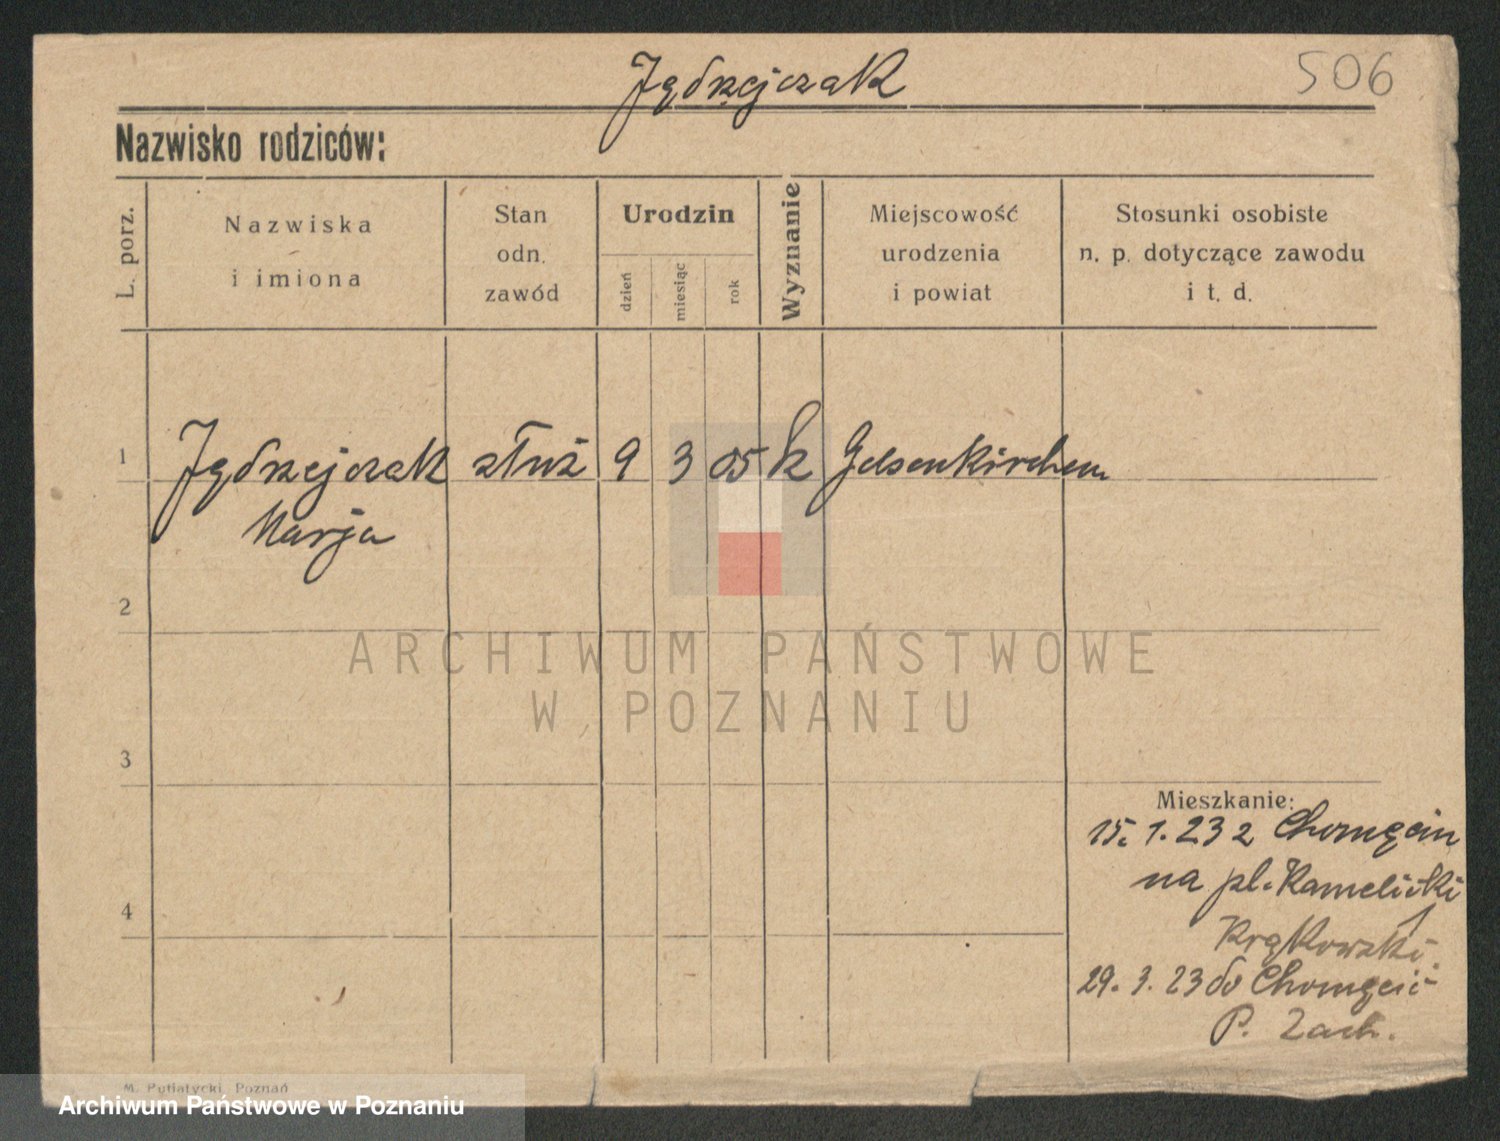 Jędrzejczak
506
Nazwisko rodziców:
L. porz.
Nazwiska
i imiona
Stan
odn.
zawód
Urodzin
dzień
miesiąc
rok
Wyznanie
Miejscowość
urodzenia
i powiat
Stosunki osobiste
n. p. dotyczące zawodu
i t. d.
1
Jędrzejczak służ 9 3 05 k Gelsenkirchen
Marja
2
3
4
Mieszkanie:
15. 1. 23 z Chomęcin
na pl.
29. 3. 23 do
P. Zach.
M. Putiatycki, Poznań
ARCHIWUM PAŃSTWOWE
W POZNANIU
Archiwum Państwowe w Poznaniu